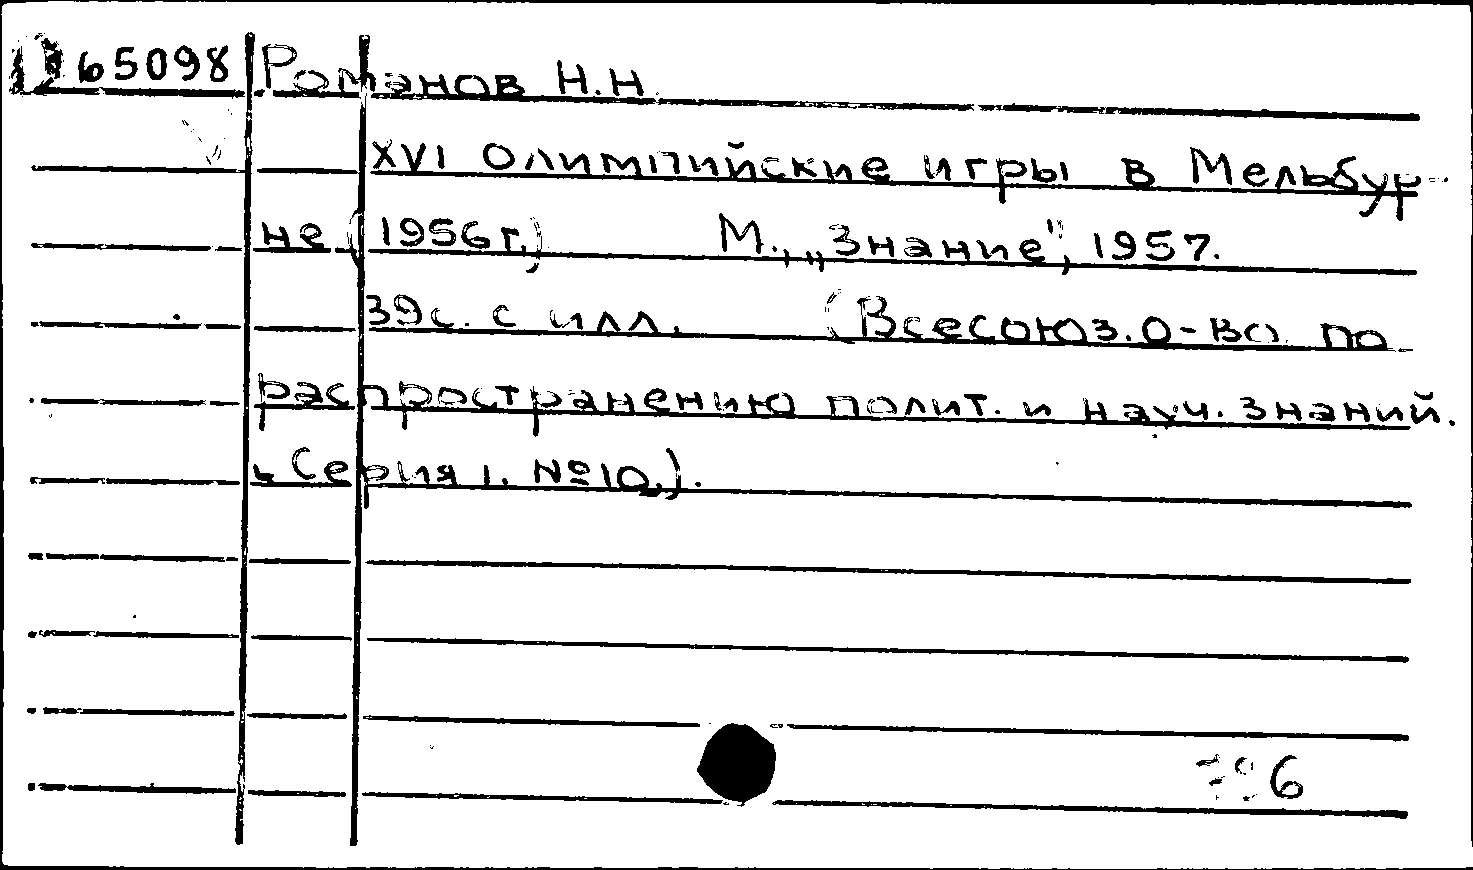 D 65098 Романов Н.Н.
XVI Олимпийские игры в Мельбур-
не (1956 г.) М., „Знание", 1957.
39с. с илл. (Всесоюз. О-во по
распространению полит. и науч. знаний.
Серия 1. №10.).